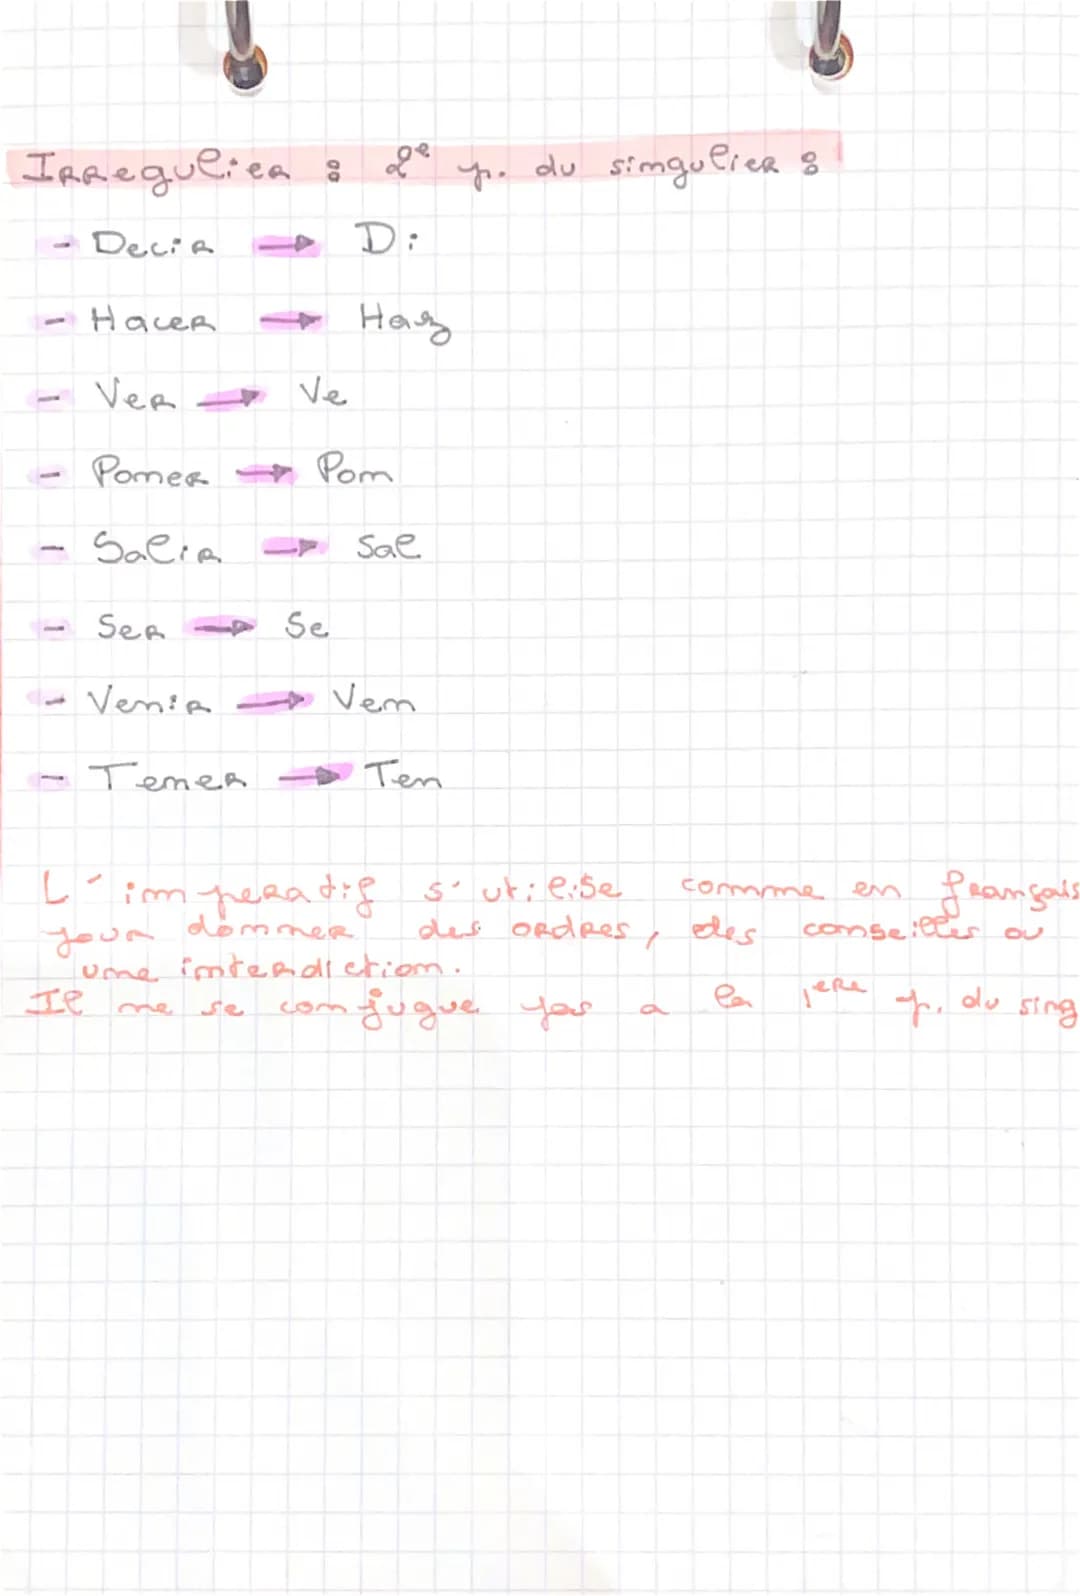 Irregulier : 2e p. du singulier :
- Decir → Di
- Hacer → Haz
- Ver → Ve
- Poner → Pon
- Salir → Sal
- Ser → Se
- Venir → Ven
- Tener → Ten
L'imperatif s'utilise comme en français
pour donner des ordres, des conseilles ou
une interdiction.
Il ne se conjugue pas a la 1ere p. du sing